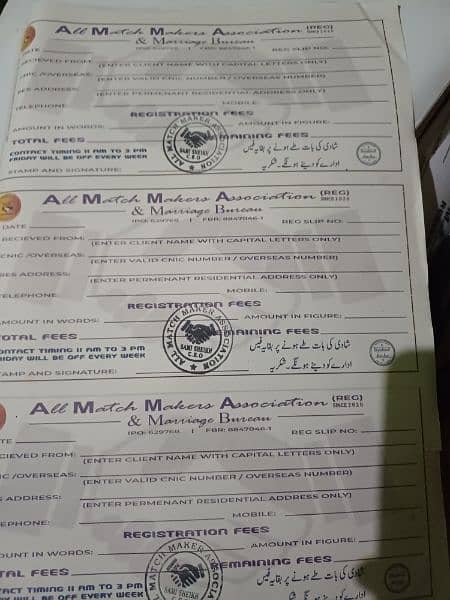 All Match Makers Association (REG)
& Marriage Bureau
DATE
REG SLIP NO:
RECIEVED FROM: (ENTER CLIENT NAME WITH CAPITAL LETTERS ONLY)
CNIC /OVERSEAS: (ENTER VALID CNIC NUMBER / OVERSEAS NUMBER)
RES ADDRESS: (ENTER PERMENANT RESIDENTIAL ADDRESS ONLY)
TELEPHONE: MOBILE:
REGISTRATION FEES
AMOUNT IN WORDS: AMOUNT IN FIGURE:
TOTAL FEES REMAINING FEES
CONTACT TIMING 11 AM TO 3 PM
FRIDAY WILL BE OFF EVERY WEEK
شادی کی بات طے ہونے پر بقایہ فیس
ادارے کو دینے ہونگے۔ شکریہ
STAMP AND SIGNATURE:
ALL MATCH MAKER ASSOCIATION
SAMI SHEIKH
C.E.O
All Match Makers Association (REG)
& Marriage Bureau
IPO: 629768 | FBR: 8847046-1
DATE REG SLIP NO:
RECIEVED FROM: (ENTER CLIENT NAME WITH CAPITAL LETTERS ONLY)
CNIC /OVERSEAS: (ENTER VALID CNIC NUMBER / OVERSEAS NUMBER)
RES ADDRESS: (ENTER PERMENANT RESIDENTIAL ADDRESS ONLY)
TELEPHONE MOBILE:
REGISTRATION FEES
AMOUNT IN WORDS: AMOUNT IN FIGURE:
TOTAL FEES REMAINING FEES
CONTACT TIMING 11 AM TO 3 PM
FRIDAY WILL BE OFF EVERY WEEK
شادی کی بات طے ہونے پر بقایہ فیس
ادارے کو دینے ہونگے۔ شکریہ
STAMP AND SIGNATURE:
ALL MATCH MAKER ASSOCIATION
SAMI SHEIKH
C.E.O
All Match Makers Association (REG)
& Marriage Bureau
IPO: 629768 | FBR: 8847046-1
DATE REG SLIP NO:
RECIEVED FROM: (ENTER CLIENT NAME WITH CAPITAL LETTERS ONLY)
CNIC /OVERSEAS: (ENTER VALID CNIC NUMBER / OVERSEAS NUMBER)
RES ADDRESS: (ENTER PERMENANT RESIDENTIAL ADDRESS ONLY)
TELEPHONE: MOBILE:
REGISTRATION FEES
AMOUNT IN WORDS: AMOUNT IN FIGURE:
TOTAL FEES REMAINING FEES
CONTACT TIMING 11 AM TO 3 PM
FRIDAY WILL BE OFF EVERY WEEK
شادی کی بات طے ہونے پر بقایہ فیس
ادارے کو دینے ہونگے۔ شکریہ
MATCH MAKER ASSOCIA
SAMI SHEIKH
C.E.O